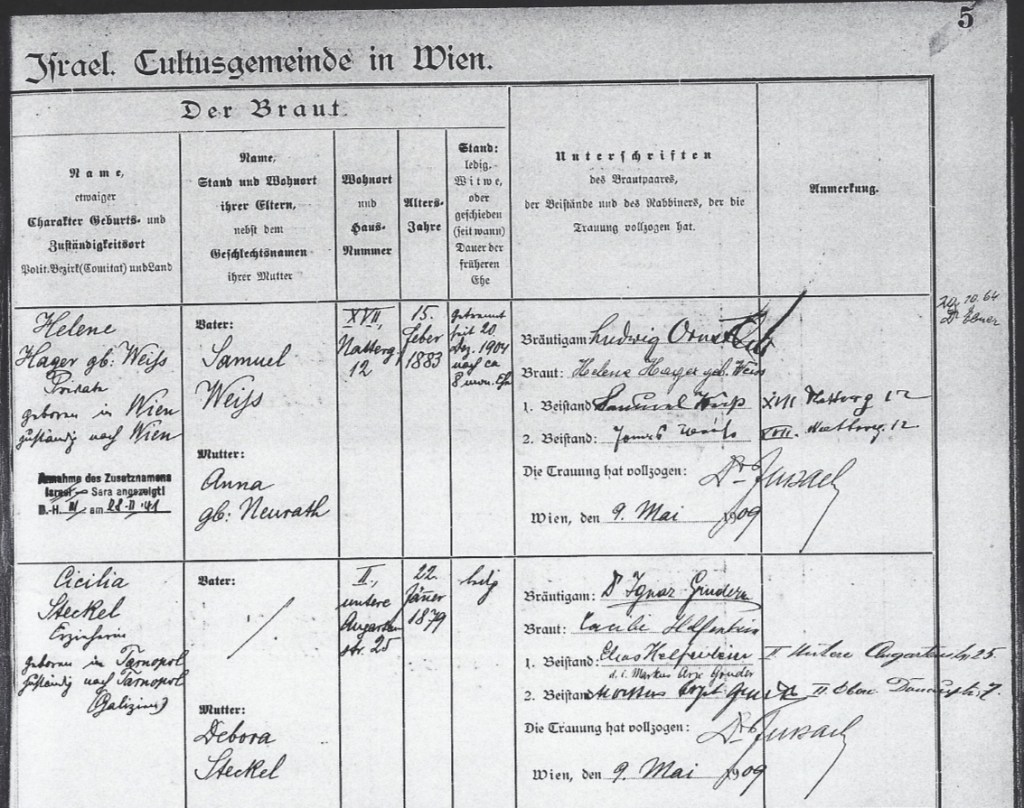 5
Israel. Cultusgemeinde in Wien.
Der Braut
Name,
etwaiger
Charakter Geburts- und
Zuständigkeitsort
Polit. Bezirk (Comitat) und Land
Name,
Stand und Wohnort
ihrer Eltern,
nebst dem
Geschlechtsnamen
ihrer Mutter
Wohnort
und
Haus-
Nummer
Alters-
Jahre
Stand:
ledig.
Witwe,
oder
geschieden
(seit wann)
Dauer der
früheren
Ehe
Unterschriften
des Brautpaares,
der Beistände und des Rabbiners, der die
Trauung vollzogen hat.
Anmerkung.
Helene
Hager gb: Weiss
Private
geboren in Wien
zuständig nach Wien
Annahme des Zusatznamens
Israel Sara angezeigt!
am 22-II-41
Vater:
Samuel
Weiss
Mutter:
Anna
gb: Neurath
XVII,
Natterg
12
15.
Feber
1883
getrennt
seit 20
Dez. 1904
nach ca
8 mon. Ehe
Bräutigam: Ludwig
Braut: Helene Hager gb. Weiss
1. Beistand: Samuel Weiss XVII Natterg 12
2. Beistand: Weiss XVII. Natterg. 12
Die Trauung hat vollzogen: Dr
Wien, den 9. Mai 1909
10.64
Dr Ebner
Cicilia
Steckel
Erzieherin
geboren in Tarnopol
zuständig nach Tarnopol
(Galizien)
Vater:
Mutter:
Debora
Steckel
II.,
untere
Augarten
str. 25
22.
Jänner
1879
ledig
Bräutigam: Dr Ignaz
Braut: Helfenbein
1. Beistand: Elias II Untere Augartenstr. 25
d. i. Markus Gruder
2. Beistand: II. Obere Donaustr. 7.
Die Trauung hat vollzogen: Dr
Wien, den 9. Mai 1909